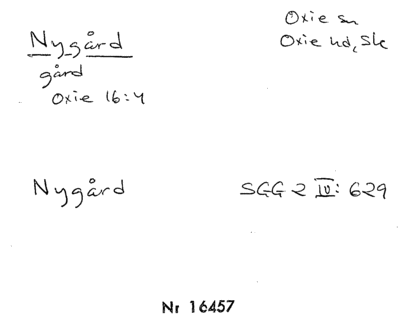 Nygård
gård
Oxie 16:4
Oxie sn
Oxie hd, Sk
Nygård
SGG 2 IV: 629
Nr 16457